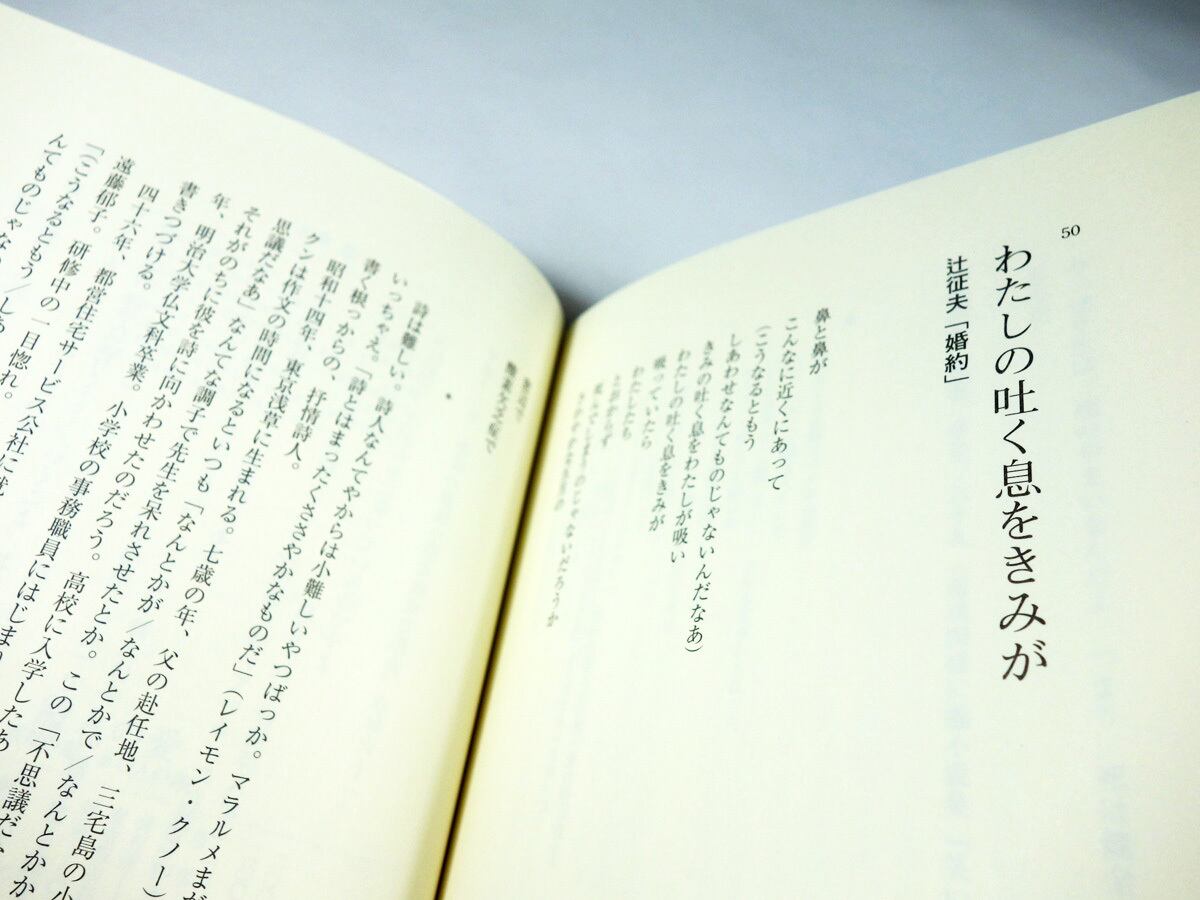 50
わたしの吐く息をきみが
辻征夫「婚約」
鼻と鼻が
こんなに近くにあって
(こうなるともう
しあわせなんてものじゃないんだなあ)
きみの吐く息をわたしが吸い
わたしの吐く息をきみが
吸っていたら
わたしたち
とおからず
死んでしまうのじゃないだろうか
詩は難しい。詩人なんてやからは小難しいやつばっか。マラルメまが
いっちゃえ。「詩とはまったくささやかなものだ」(レイモン・クノー)
書く根っからの、抒情詩人。
昭和十四年、東京浅草に生まれる。七歳の年、父の赴任地、三宅島の小
クンは作文の時間になるといつも「なんとかが/なんとかで/なんとかか
思議だなあ」なんてな調子で先生を呆れさせたとか。この「不思議だ
それがのちに彼を詩に向かわせたのだろう。高校に入学したあ
年、明治大学仏文科卒業。小学校の事務職員にはじまり
書きつづける。
四十六年、都営住宅サービス公社に就
遠藤郁子。研修中の一目惚れ。
「(こうなるともう/しあ
んてものじゃない